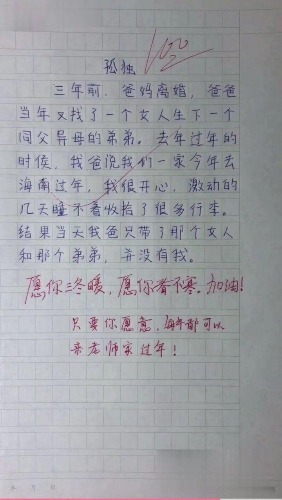 100
孤独
三年前，爸妈离婚，爸爸
当年又找了一个女人生下一个
同父异母的弟弟。去年过年的
时候，我爸说我们一家今年去
海南过年，我很开心，激动的
几天睡不着收拾了很多行李。
结果当天我爸只带了那个女人
和那个弟弟，并没有我。
愿你三冬暖，愿你春不寒。加油!
只要你愿意，每年都可以
来老师家过年!
年 月 日